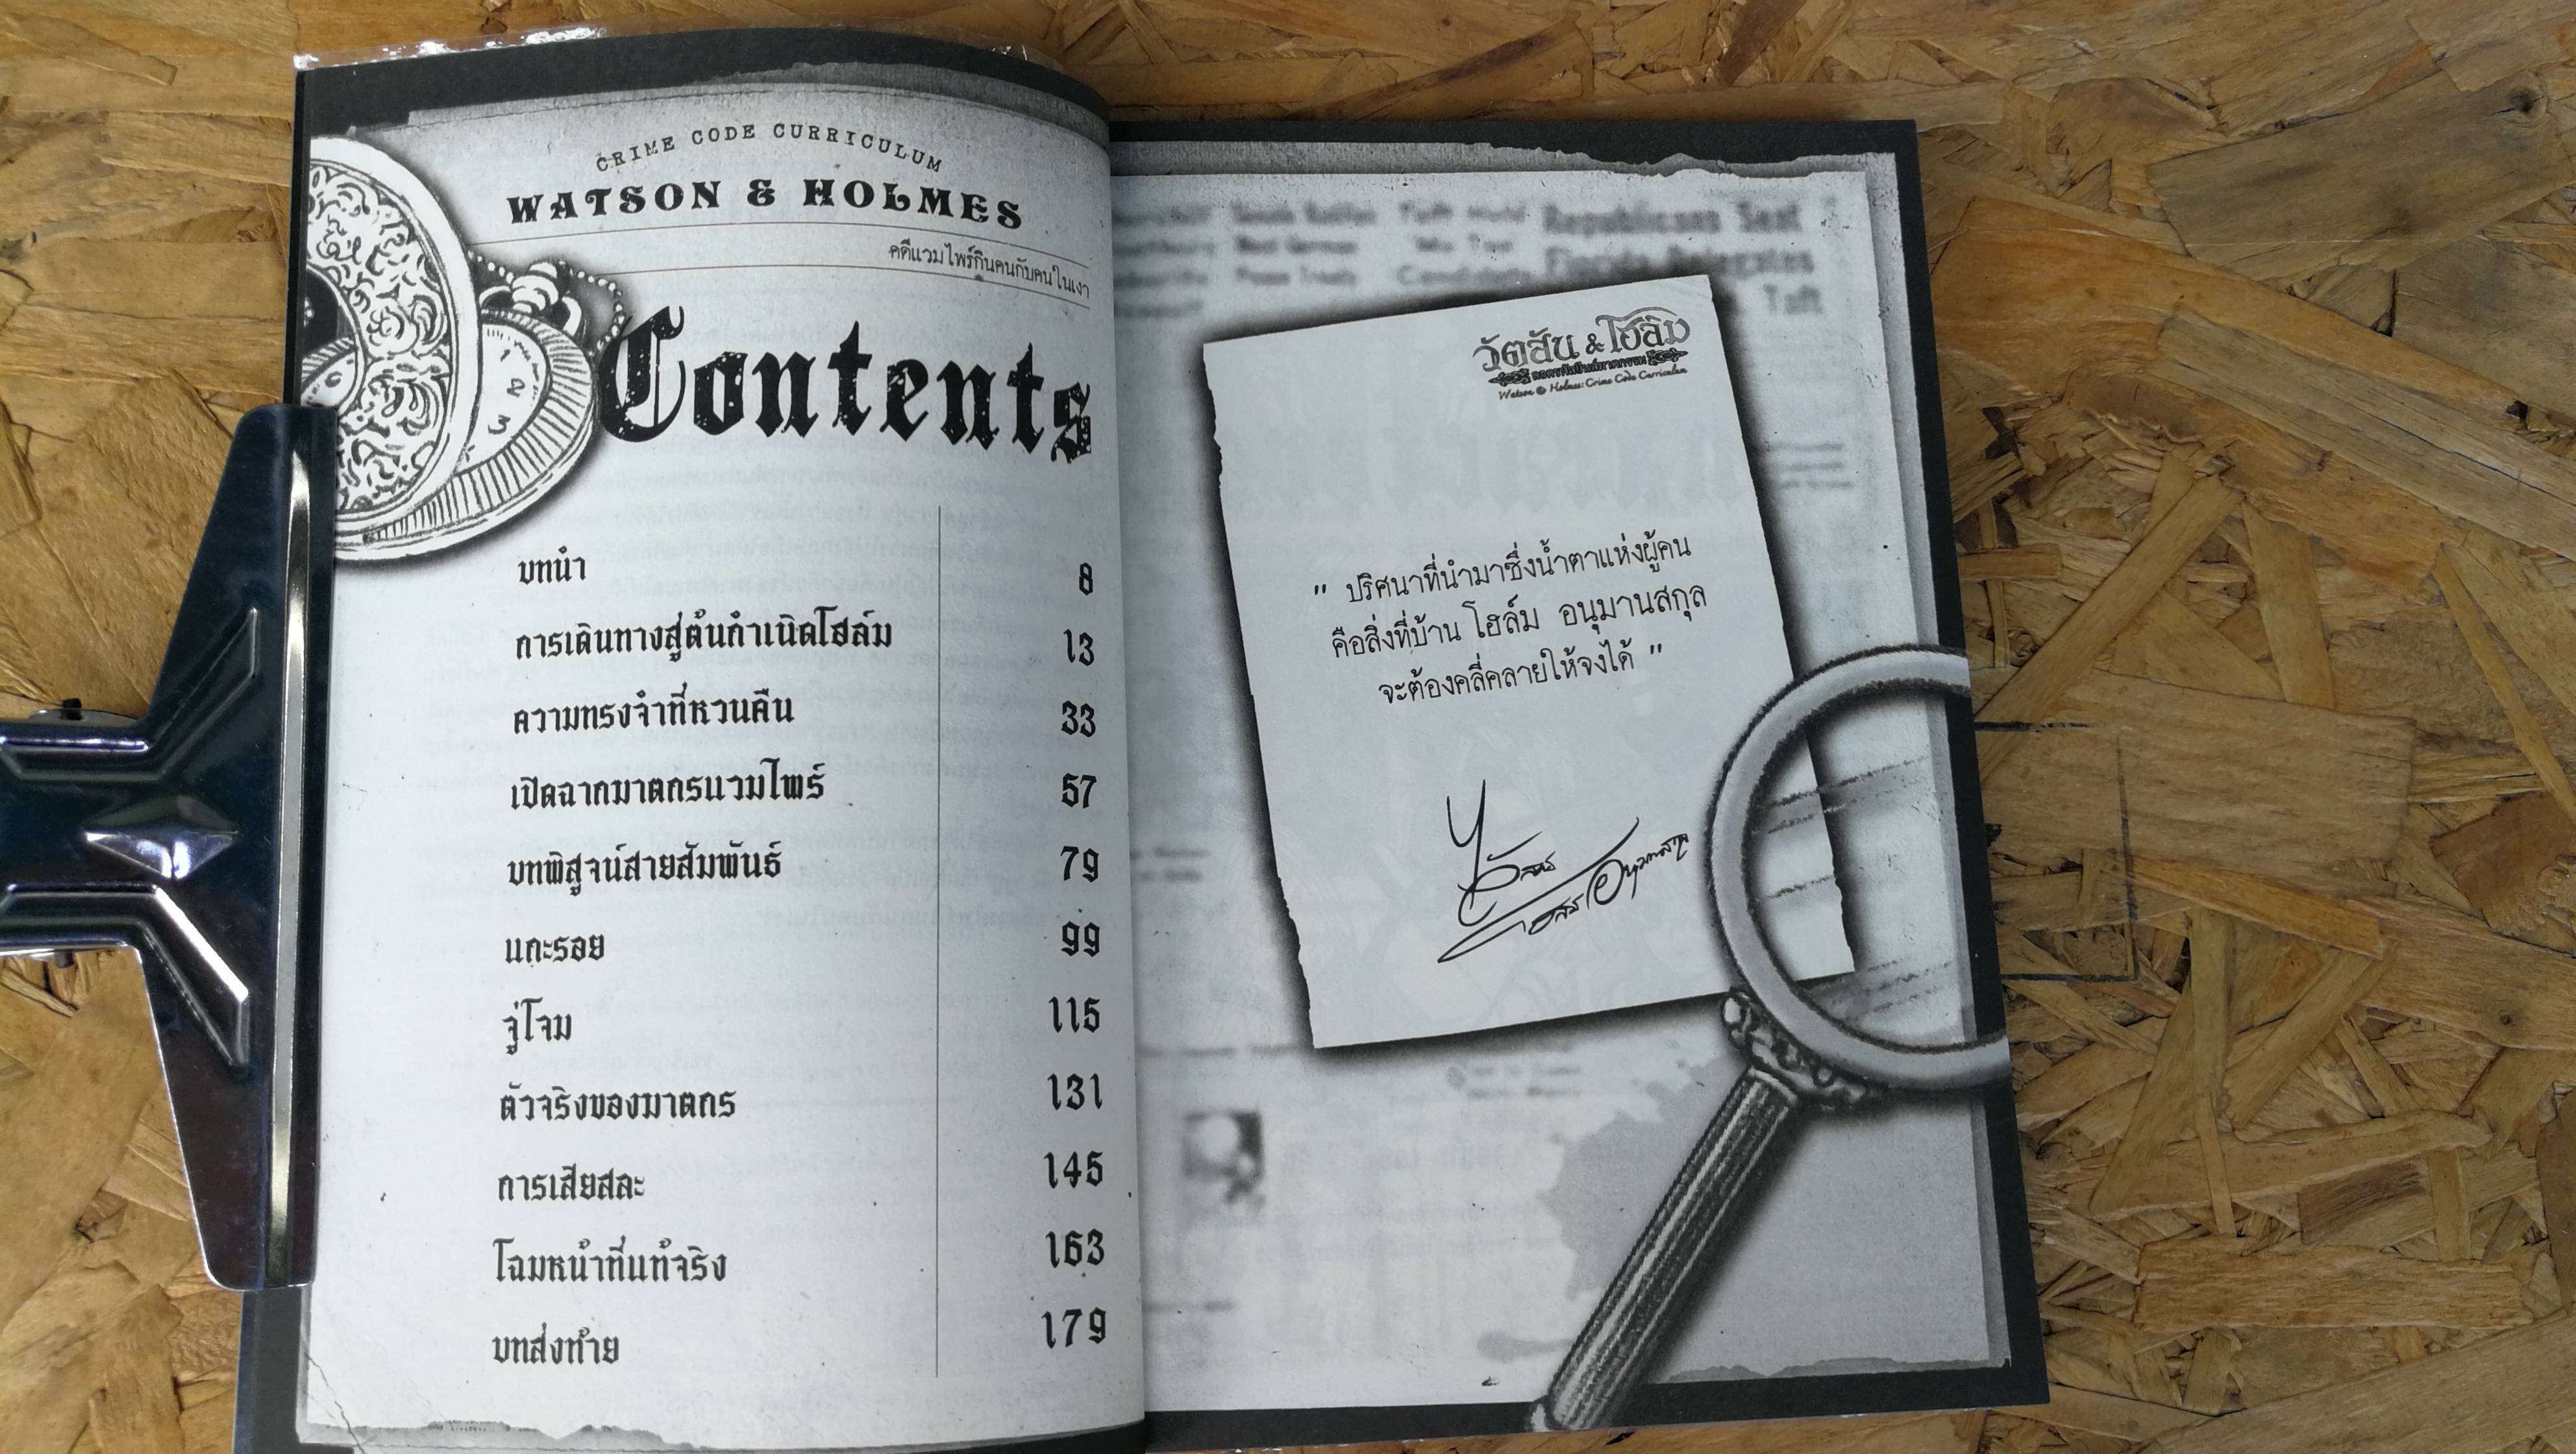 CRIME CODE CURRICULUM
WATSON & HOLMES
คดีแวมไพร์กินคนกับคนในเงา
Contents
บทนำ 8
การเดินทางสู่ต้นกำเนิดโฮล์ม 13
ความทรงจำที่หวนคืน 33
เปิดฉากฆาตกรแวมไพร์ 57
บทพิสูจน์สายสัมพันธ์ 79
แกะรอย 99
จู่โจม 115
ตัวจริงของฆาตกร 131
การเสียสละ 145
โฉมหน้าที่แท้จริง 163
บทส่งท้าย 179
Republicans Seat
Florida Delegates
Taft
วัตสัน & โฮล์ม
Watson & Holmes: Crime Code Curriculum
" ปริศนาที่นำมาซึ่งน้ำตาแห่งผู้คน
คือสิ่งที่บ้าน โฮล์ม อนุมานสกุล
จะต้องคลี่คลายให้จงได้ "
1 2 3